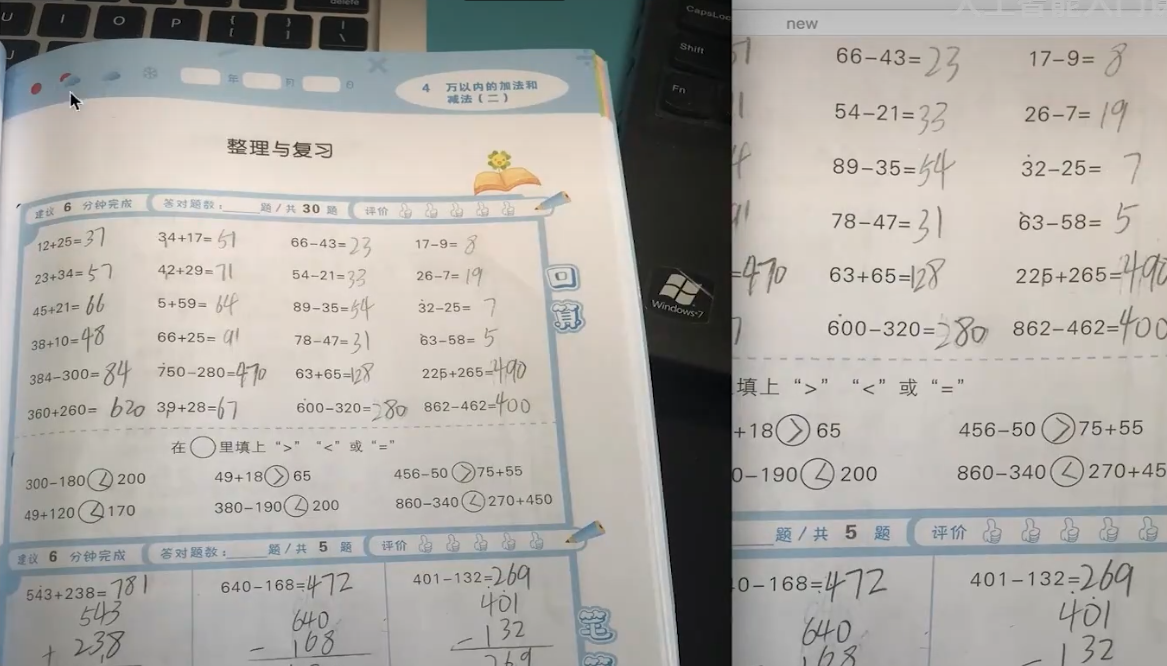 delete
U I O P { [ } ] | \
年 月 日
4 万以内的加法和
减法(二)
整理与复习
建议 6 分钟完成 答对题数:____题/共 30 题 评价
12+25=37 34+17=51 66-43=23 17-9=8
23+34=57 42+29=71 54-21=33 26-7=19
45+21=66 5+59=64 89-35=54 32-25=7
38+10=48 66+25=91 78-47=31 63-58=5
384-300=84 750-280=470 63+65=128 225+265=490
360+260=620 39+28=67 600-320=280 862-462=400
口算
在○里填上“>”“<”或“=”
300-180<200 49+18>65 456-50>75+55
49+120<170 380-190<200 860-340<270+450
建议 6 分钟完成 答对题数:____题/共 5 题 评价
543+238=781 640-168=472 401-132=269
543 640 401
+ 238 - 168 - 132
269
笔
CapsLoc
Shift
Fn
Windows 7
new
66-43=23 17-9=8
54-21=33 26-7=19
89-35=54 32-25=7
78-47=31 63-58=5
=470 63+65=128 225+265=490
600-320=280 862-462=400
填上“>”“<”或“=”
+18>65 456-50>75+55
0-190<200 860-340<270+45
题/共 5 题 评价
0-168=472 401-132=269
640 401
168 - 132